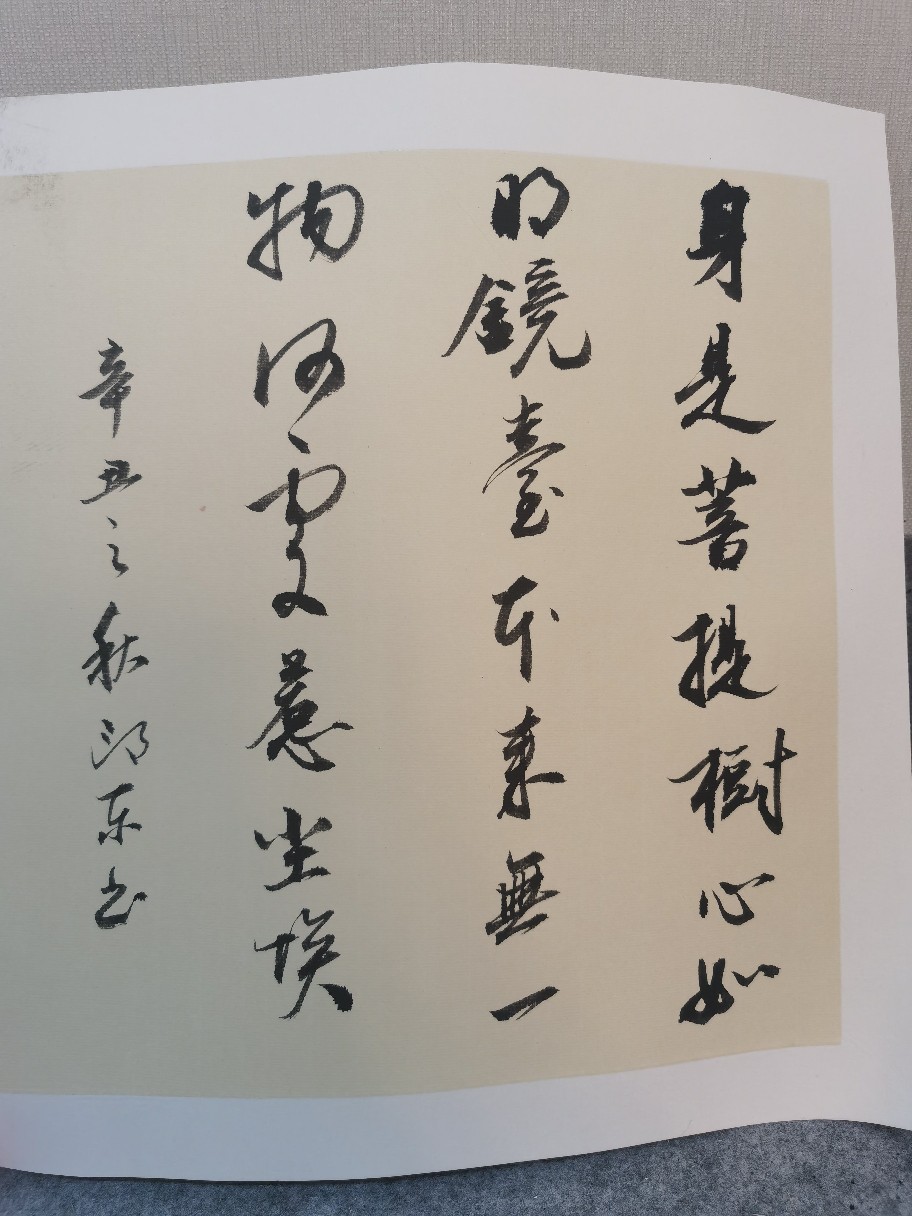 身是菩提樹心如
明鏡臺本来無一
物何處惹尘埃
辛丑之秋邱东书